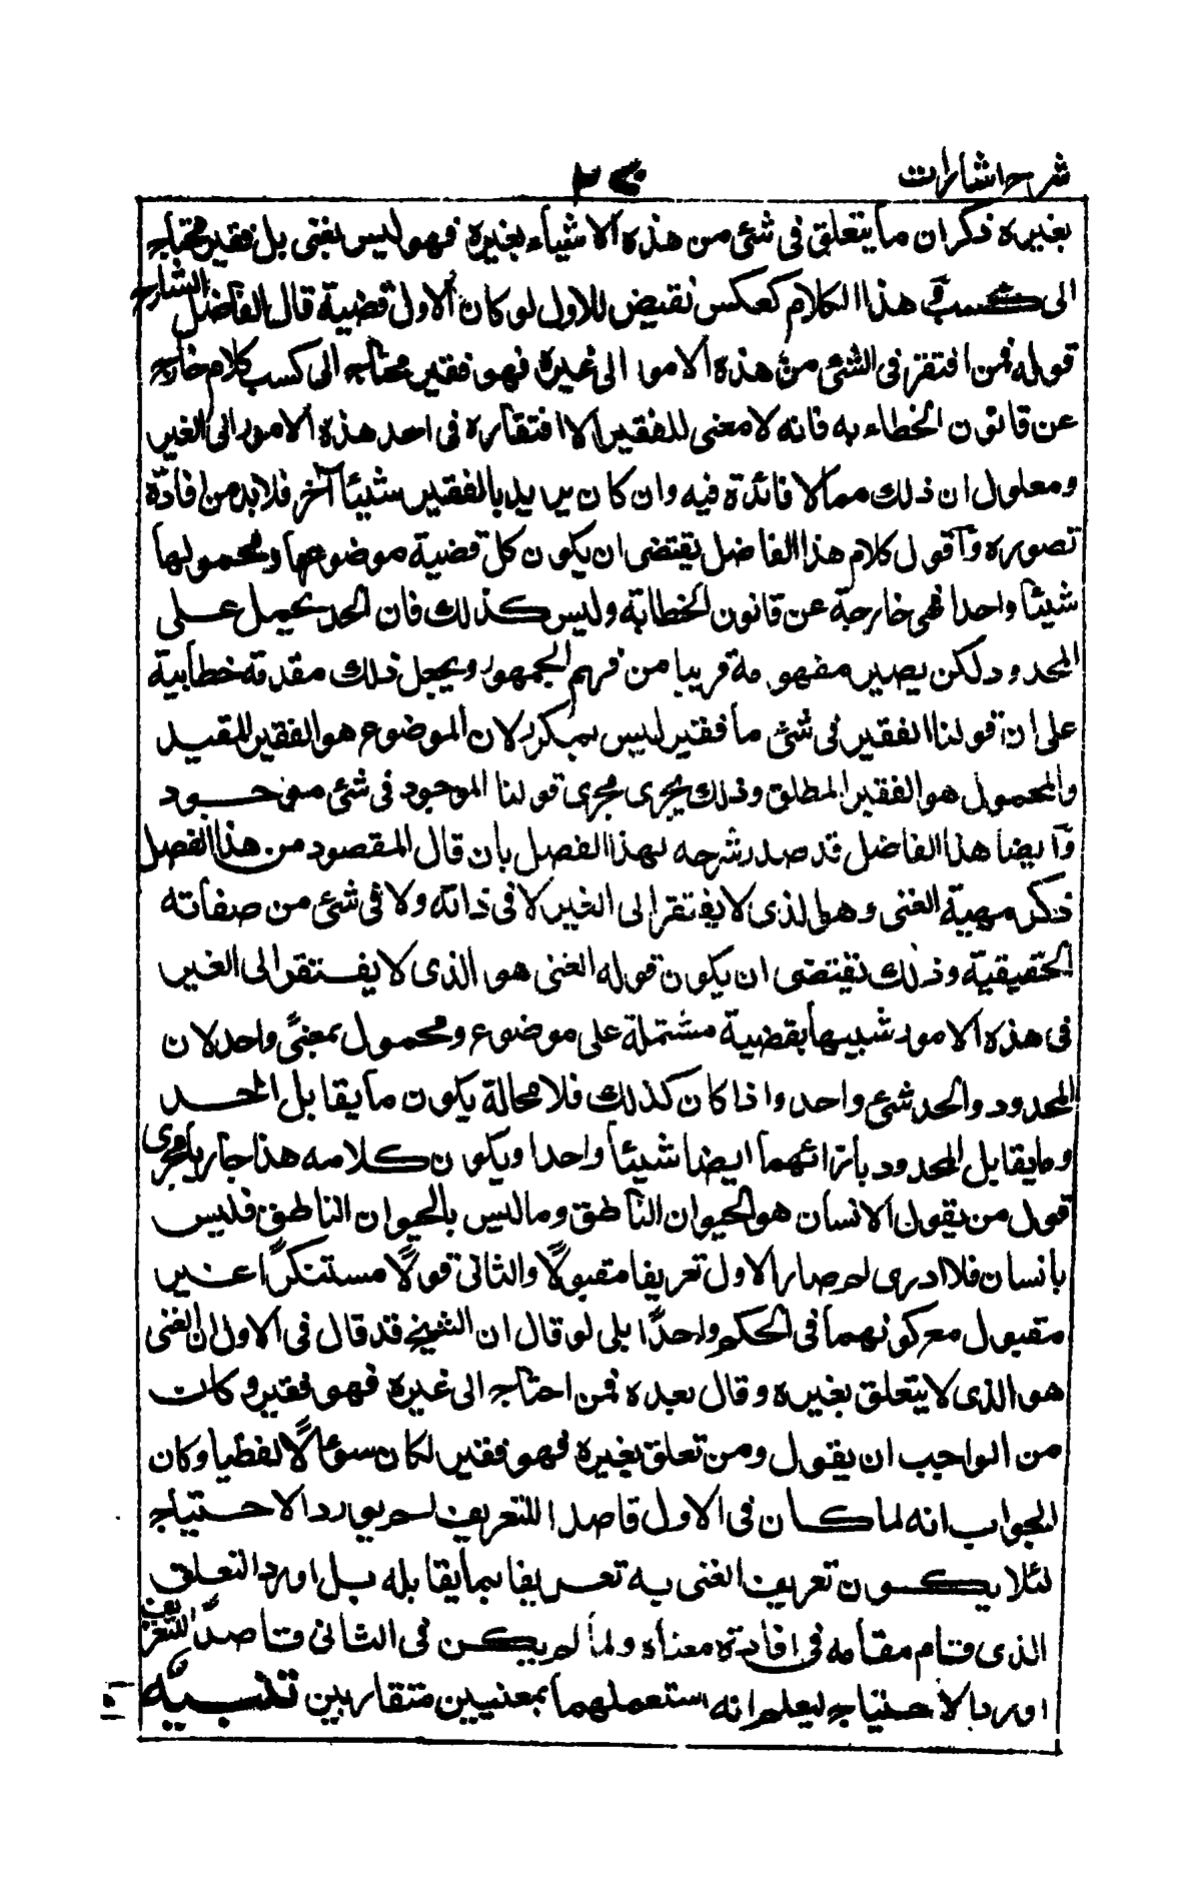 شرح اشارات
بغيره ذكر ان ما يتعلق فى شئ من هذه الاشياء بغيره فهو ليس بغنى بل فقير محتاج
الى كسب هذا الكلام كعكس نقيض للاول لو كان الاول قضية قال الفاضل الشارح
قوله فمن افتقر فى الشئ من هذه الامور الى غيره فهو فقير محتاج الى كسب كلام خارج
عن قانون الخطاء به فانه لا معنى للفقير الا افتقاره فى احد هذه الامور الى الغير
ومعلول ان ذلك مما لا فائدة فيه وان كان يريد بالفقير شيئا آخر فلا بد من افادة
تصوره وآقول كلام هذا الفاضل يقتضى ان يكون كل قضية موضوعها ومحمولها
شيئا واحدا فهى خارجة عن قانون الخطابة وليس كذلك فان الحد يحمل على
المحدود لكن يصير مفهومة قريبا من فهم الجمهور ويجعل ذلك مقدمة خطابية
على ان قولنا الفقير فى شئ ما فقير ليس بمكرر لان الموضوع هو الفقير المقيد
والمحمول هو الفقير المطلق وذلك يجرى مجرى قولنا الموجود فى شئ موجود
وآيضا هذا الفاضل قد صدر شرحه لهذا الفصل بان قال المقصود من هذا الفصل
ذكر مهية الغنى وهو الذى لا يفتقر الى الغير لا فى ذاته ولا فى شئ من صفاته
الحقيقية وذلك يقتضى ان يكون قوله الغنى هو الذى لا يفتقر الى الغير
فى هذه الامور شبيها بقضية مشتملة على موضوع ومحمول بمعنىً واحد لان
المحدود والحد شئ واحد واذا كان كذلك فلا محالة يكون ما يقابل الحد
وما يقابل المحدود بازائهما ايضا شيئا واحدا ويكون كلامه هذا جاريا مجرى
قول من يقول الانسان هو الحيوان الناطق وما ليس بالحيوان الناطق فليس
بانسان فلا ادرى لم صار الاول تعريفا مقبولًا والثانى قولًا مستنكرًا غير
مقبول مع كونهما فى الحكم واحدًا بلى لو قال ان الشيخ قد قال فى الاول ان الغنى
هو الذى لا يتعلق بغيره وقال بعده فمن احتاج الى غيره فهو فقير وكان
من الواجب ان يقول ومن تعلق بغيره فهو فقير لكان سوءالًا لفظيا وكان
الجواب انه لما كان فى الاول قاصدا للتعريف لم يورد الاحتياج
لئلا يكون تعريف الغنى به تعريفا بما يقابله بل اورد التعلق
الذى قام مقامه فى افادته معناه ولما لم يكن فى الثانى قاصدًا للتعريف
اورد الاحتياج ليعلم انه استعملهما بمعنيين متقاربين تنبيه